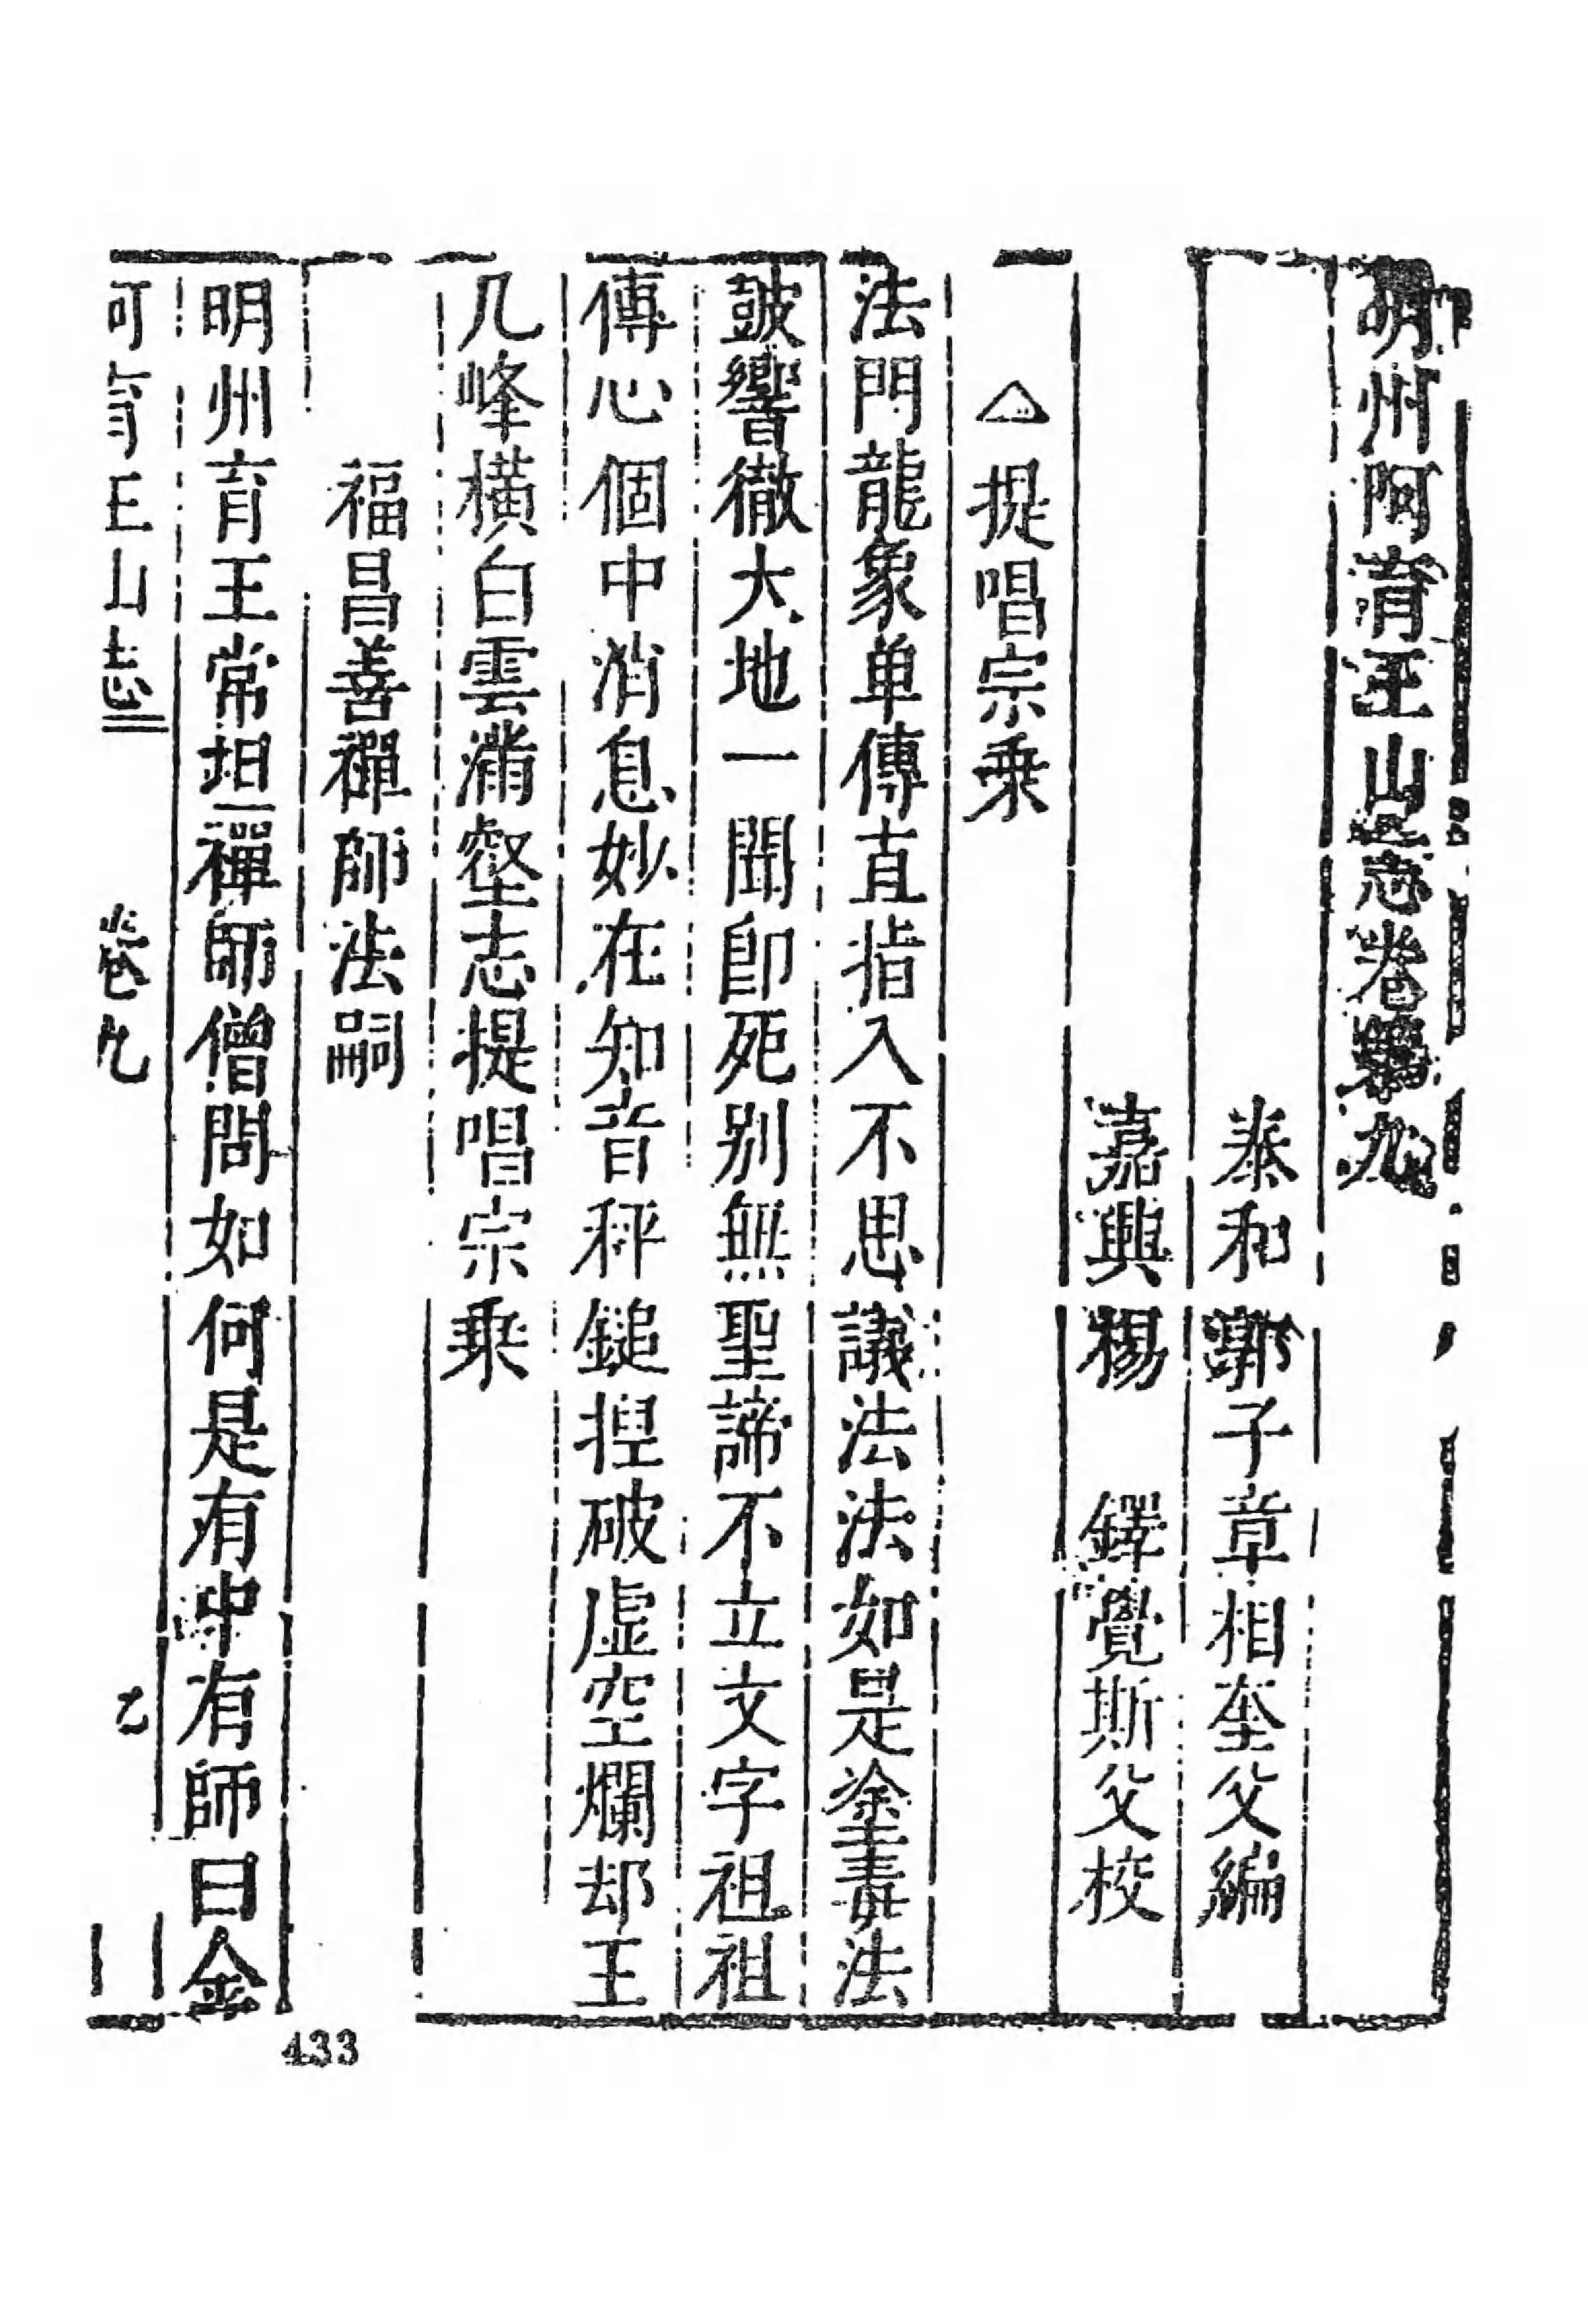 明州阿育王山志卷第九
泰和 郭子章相奎父編
嘉興 楊 鐸覺斯父校
△提唱宗乗
法門龍象单傳直指入不思議法法如是塗毒法
皷響徹大地一聞卽死别無聖諦不立文字祖祖
傳心個中消息妙在知音秤鎚捏破虛空爛却王
几峰橫白雲滿壑志提唱宗乗
福昌善禪師法嗣
明州育王常坦禪師僧問如何是有中有師曰金
阿育王山志 卷九 乙
433